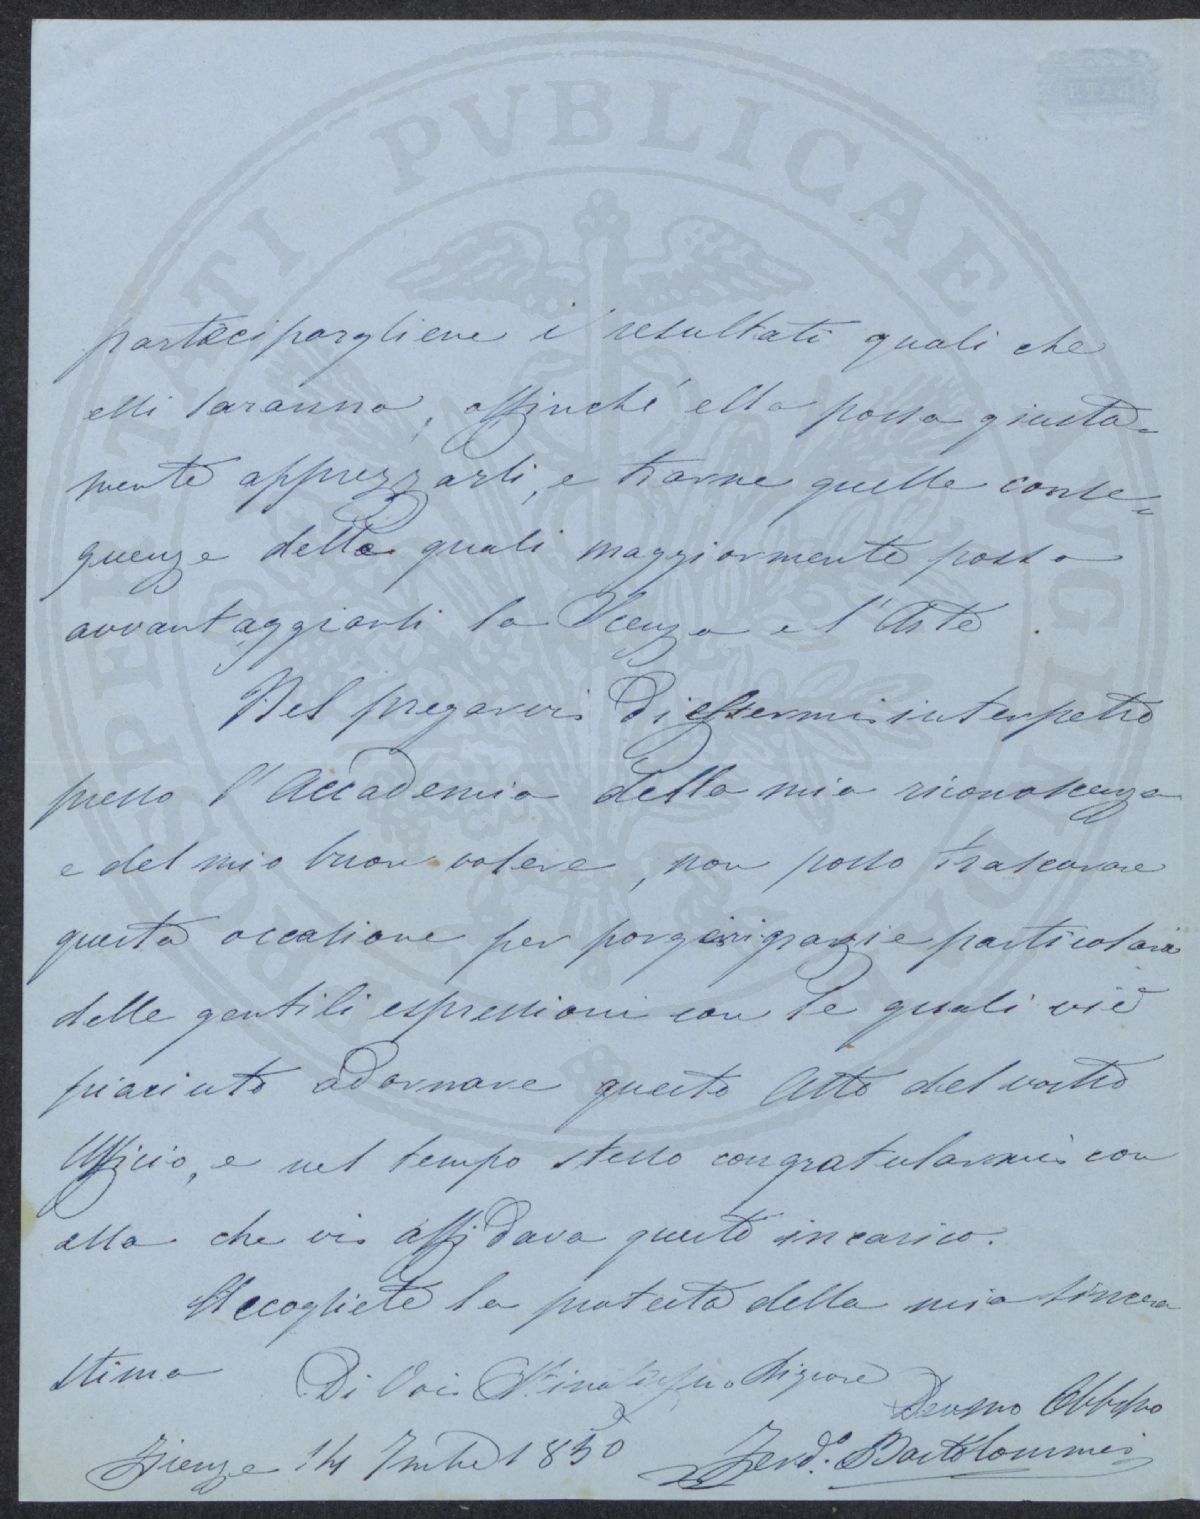 PROSPERITATI PVBLICAE AVGENDAE
partecipargliene i resultati quali che
essi saranno, affinché ella possa giusta=
mente apprezzarli, e trarne quelle conse=
guenze delle quali maggiormente possa
avvantaggiarsi la Scenza e l'Arte.
Nel pregarvi di essermi interpetre
presso l'Accademia della mia riconoscenza
e del mio buon volere, non posso trascurare
questa occasione per porgervi grazie particolari
delle gentili espressioni con le quali vi è
piaciuto adornare questo Atto del vostro
Uffizio, e nel tempo stesso congratularmi con
essa che vi affidava questo incarico.
Accogliete la protesta della mia sincera
stima
Di Voi Signore
Devmo Obbmo
Firenze 14 1850
Ferdo. Bartolommei